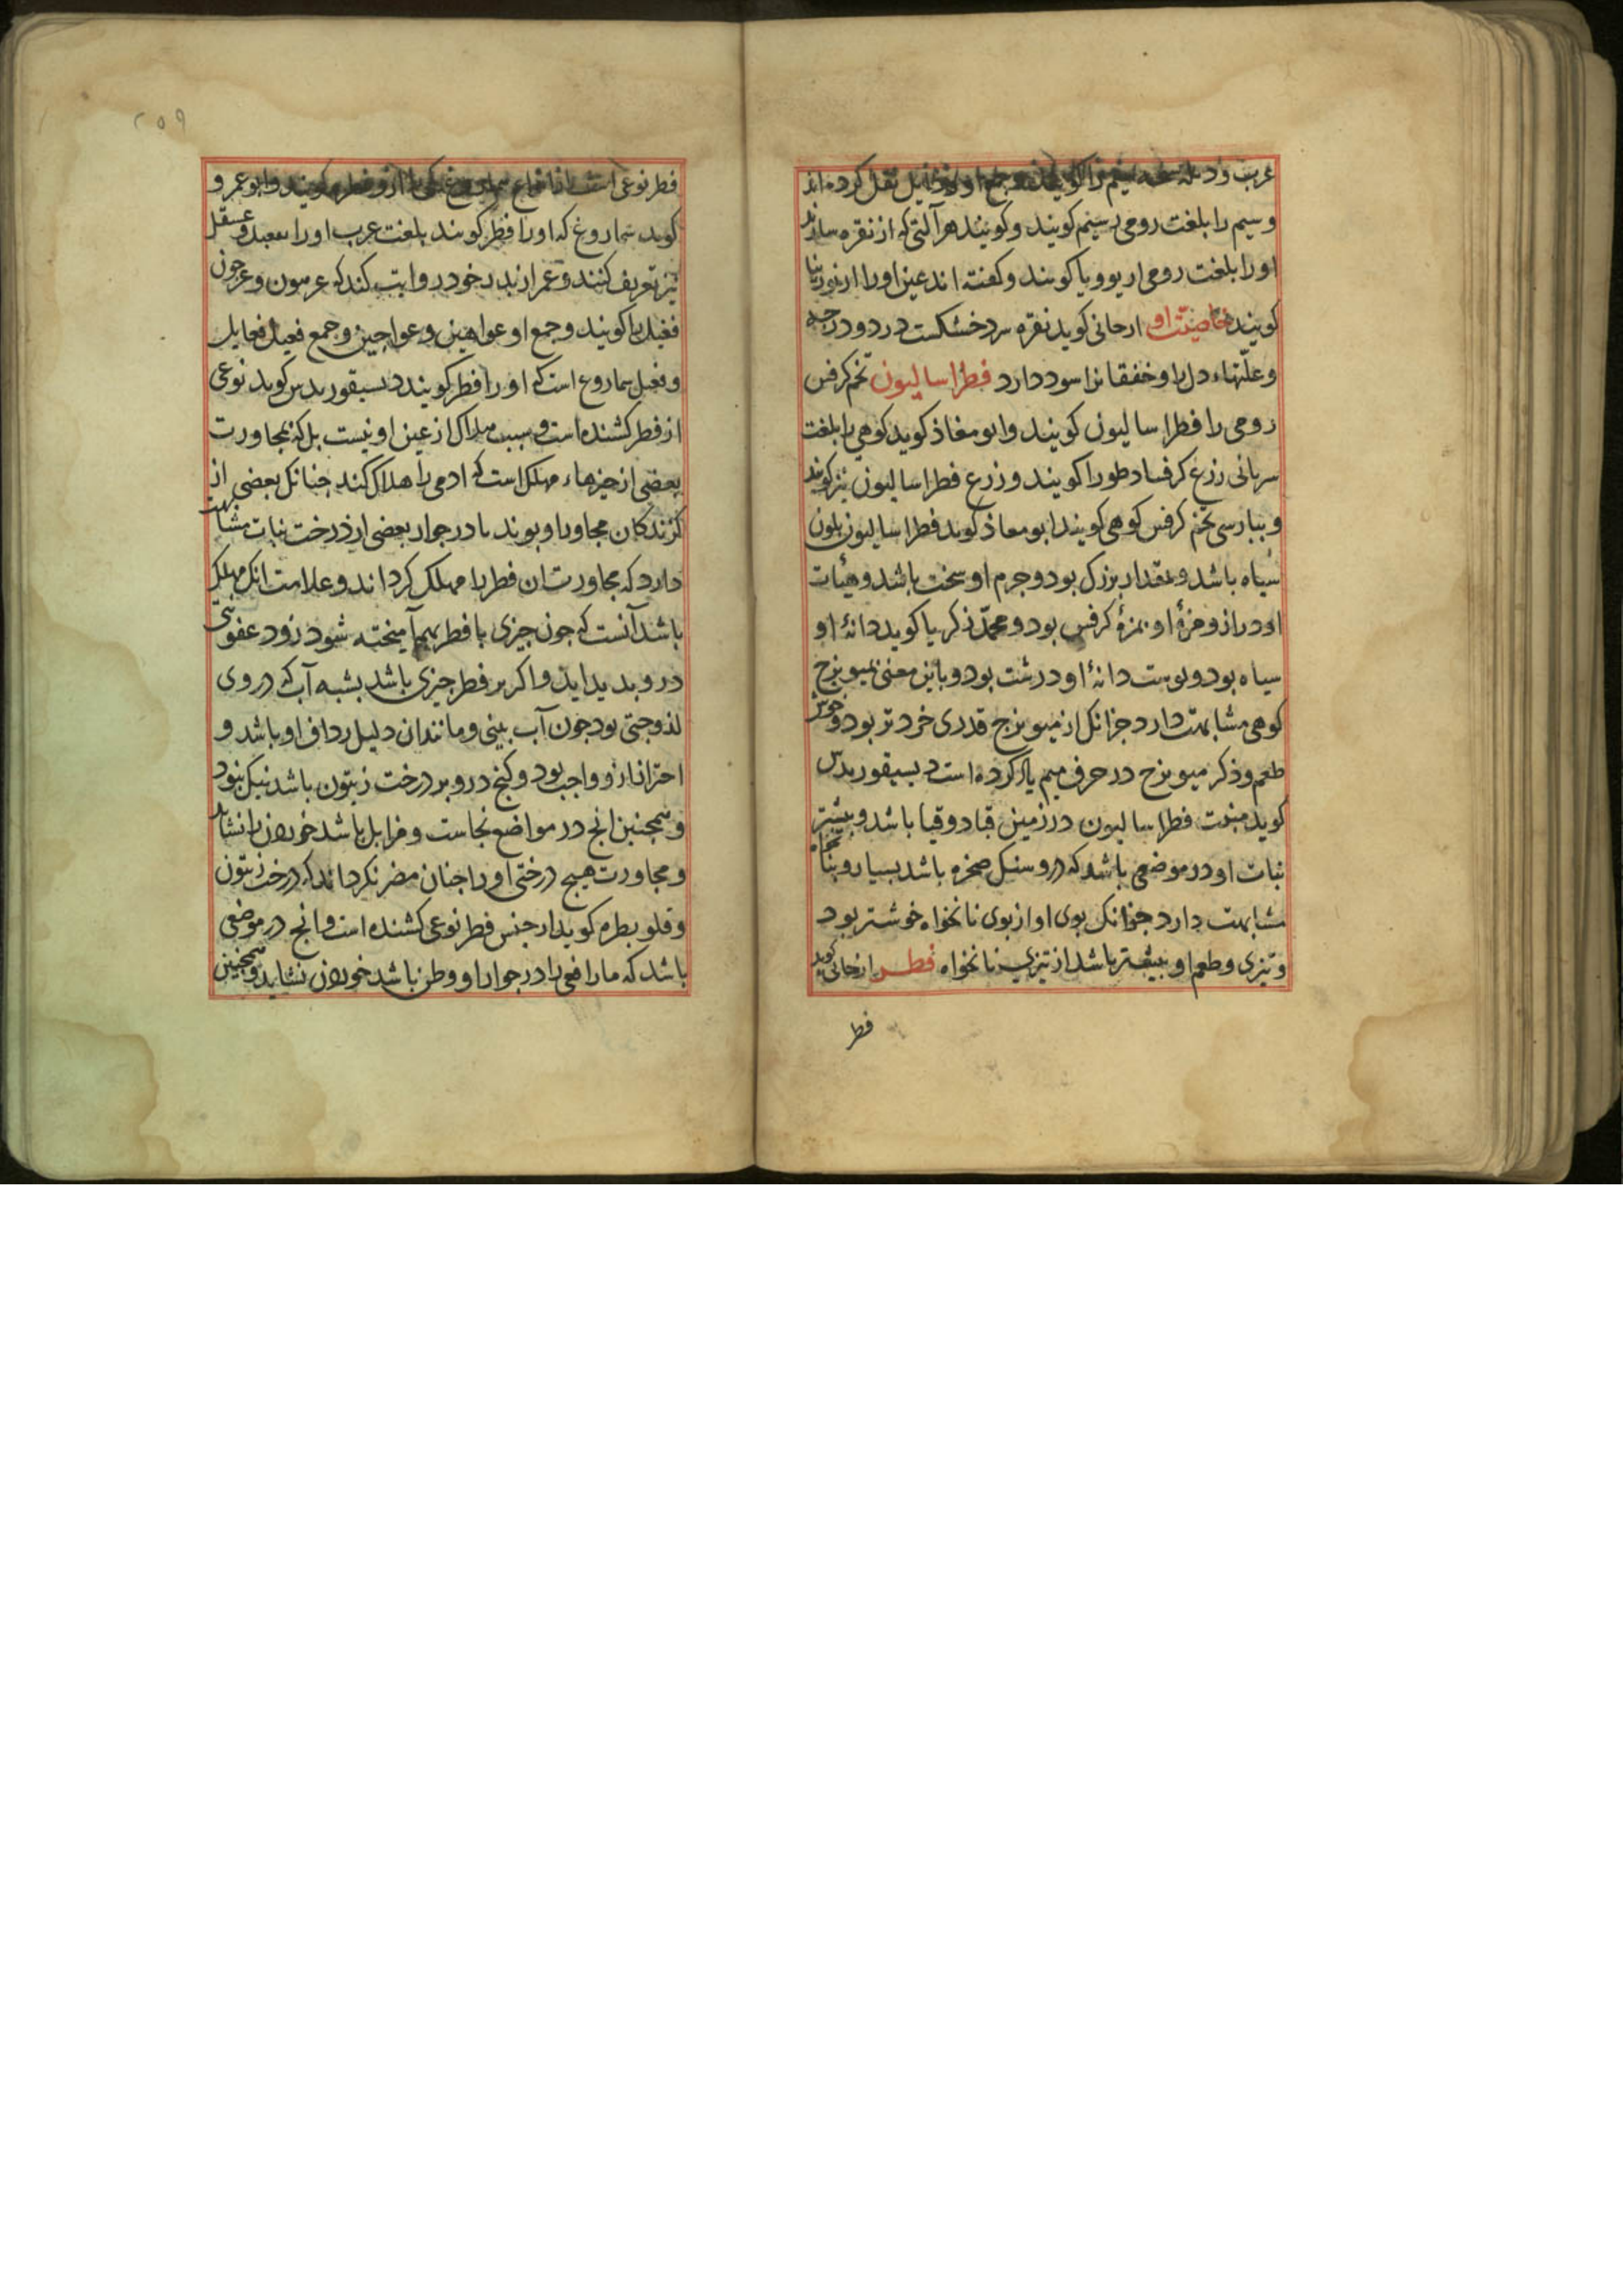 نقل کرده اند
و سیم را بلغت رومی سیم کویند و کویند هر آلتی که از نقره سازند
او را بلغت رومی کویند و کفته اند عین او را
کویند خاصیّت او ارجانی کوید نقره سرد خشکست در دو درجه
و علّتهاء دل را و خفقانرا سود دارد فطراسالیون تخم کرفس
رومی را فطراسالیون کویند و ابو معاذ کوید کوهی را بلغت
سریانی زرع کرفسا دطورا کویند و زرع فطراسالیون نیز کویند
و بپارسی تخم کرفس کوهی کویند ابو معاذ کوید فطراسالیون بلون
سیاه باشد و بمقدار بزرک بود و جرم او سخت باشد و هیئات
او دراز و مزهٔ او بمزهٔ کرفس بود و محمّد زکریا کوید دانهٔ او
سیاه بود و پوست دانهٔ او درشت بود و باین معنی بمیویزج
کوهی مشابهت دارد جزانک از میویزج قدری خردتر بود و خوش
طعم و ذکر میویزج در حرف میم یاد کرده است دیسقوریدس
کوید منبت فطراسالیون در زمین باشد و بیشتر
نبات او در موضعی باشد که درو سنک صخره باشد بسیار و بنانخواه
مشابهت دارد جزانک بوی او از بوی نانخواه خوشتر بود
و تیزی و طعم او بیشتر باشد از تیزی نانخواه فطر ارجانی کوید
فطر
۲۵۹
فطر نوعی است از انواع سماروغ و ابو عمرو
کوید سماروغ که او را فطر کویند بلغت عرب او را و عسقل
نیز تعریف کنند و عمر از پدر خود روایت کند که عرهون و عرجون
را کویند و جمع او عواهین و عواجین و جمع
و سماروع است که او را فطر کویند دیسقوریدس کوید نوعی
از فطر کشنده است و سبب هلاک از عین او نیست بل که بمجاورت
بعضی از چیزهاء مهلک است که ادمی را هلاک کند چنانک بعضی از
کزندکان مجاور او بوند یا در جوار بعضی از درخت نبات مشابهت
دارد که مجاورت ان فطر را مهلک کرداند و علامت انک مهلک
باشد آنست که چون چیزی با فطر بهم آمیخته شود زود عفونتی
درو پدید اید و اکر بر فطر چیزی باشد بشبه آب که در وی
لزوجتی بود چون آب بینی و مانند ان دلیل او باشد و
احتراز ازو واجب بود و کنج درو بر درخت زیتون باشد نیک نبود
و همچنین انچ در مواضع نجاست و مزابل باشد خوردن را نشاید
و مجاورت هیچ درختی او را چنان مضر نکرداند که درخت زیتون
و کوید از جنس فطر نوعی کشنده است و انچ در موضعی
باشد که مار افعی را در جوار او وطن باشد خوردن نشاید و همچنین